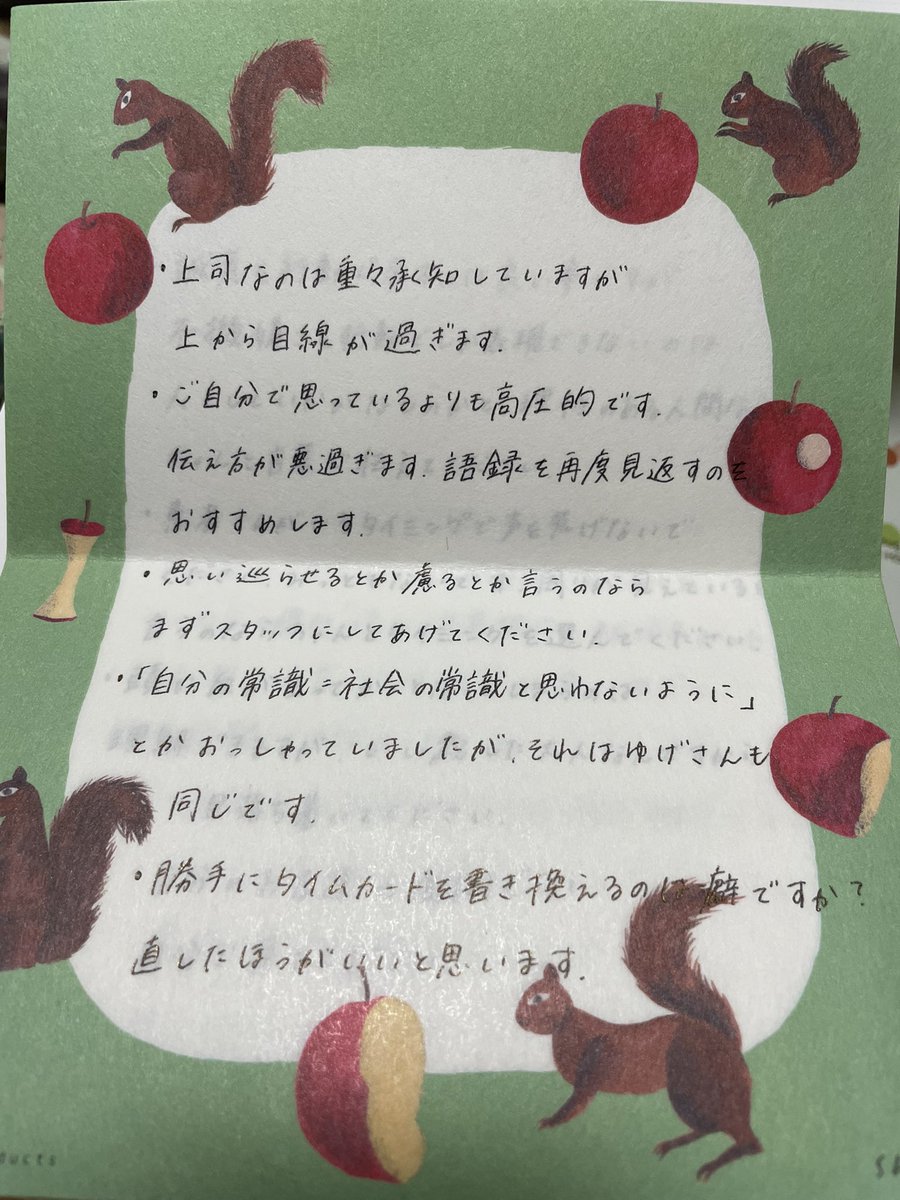 ・上司なのは重々承知していますが
上から目線が過ぎます.
・ご自分で思っているよりも高圧的です.
伝え方が悪過ぎます.語録を再度見返すのを
おすすめします.
・思い巡らせるとか慮るとか言うのなら
まずスタッフにしてあげてください.
・「自分の常識=社会の常識と思わないように」
とかおっしゃっていましたが,それはゆげさんも
同じです.
・勝手にタイムカードを書き換えるのは癖ですか?
直したほうがいいと思います.